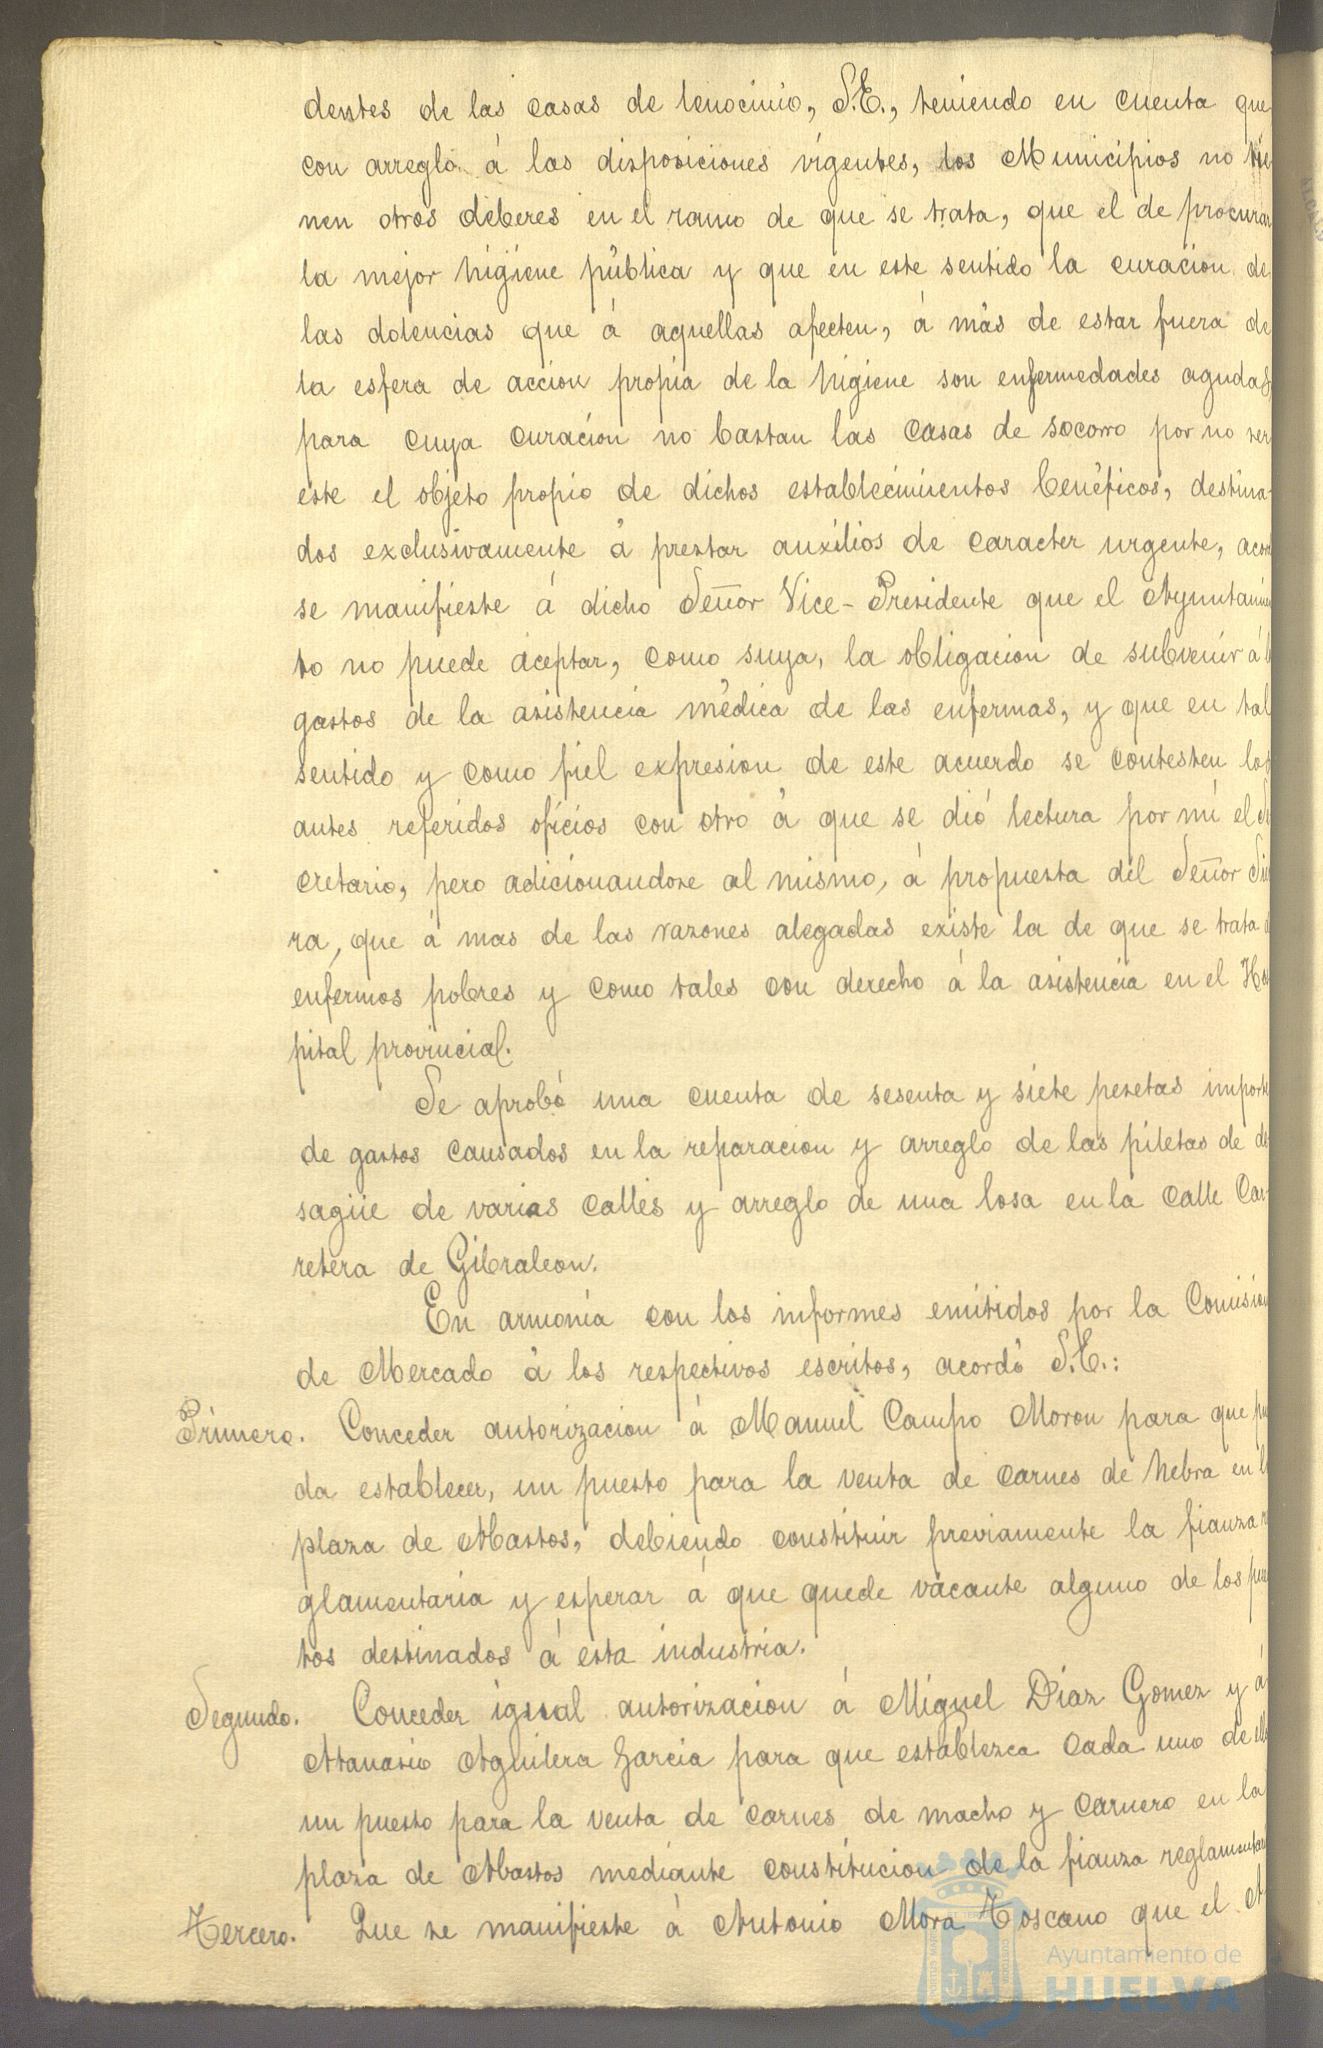 dentes de las casas de lenocinio, S.E., teniendo en cuenta que
con arreglo á las disposiciones vigentes, los Municipios no tie
nen otros deberes en el ramo de que se trata, que el de procurar
la mejor higiene pública y que en este sentido la curacion de
las dolencias que á aquellas afecten, á más de estar fuera de
la esfera de accion propia de la higiene son enfermedades agudas
para cuya curacion no bastan las casas de socorro por no ser
este el objeto propio de dichos establecimientos benéficos, destina-
dos exclusivamente á prestar auxilios de caracter urgente, acor
se manifieste á dicho Señor Vice-Presidente que el Ayuntamien
to no puede aceptar, como suya, la obligacion de subvenir á l
gastos de la asistencia médica de las enfermas, y que en tal
sentido y como fiel expresion de este acuerdo se contesten los
antes referidos oficios con otro á que se dió lectura por mi el Se
cretario, pero adicionandose al mismo, á propuesta del Señor
ra, que á mas de las razones alegadas existe la de que se trata d
enfermos pobres y como tales con derecho á la asistencia en el Hos
pital provincial.
Se aprobó una cuenta de sesenta y siete pesetas importe
de gastos causados en la reparacion y arreglo de las piletas de de
sagüe de varias calles y arreglo de una losa en la calle Car-
retera de Gibraleon.
En armonía con los informes emitidos por la Comision
de Mercado á los respectivos escritos, acordó S.E.:
Primero. Conceder autorizacion á Manuel Campo Moron para que pue
da establecer, un puesto para la venta de carnes de hebra en l
plaza de Abastos, debiendo constituir previamente la fianza re
glamentaria y esperar á que quede vacante alguno de los pues
tos destinados á esta industria.
Segundo. Conceder igual autorizacion á Miguel Díaz Gomez y á
Atanasio Aguilera Garcia para que establezca cada uno de ellos
un puesto para la venta de carnes de macho y carnero en la
plaza de Abastos mediante constitucion de la fianza reglamentaria
Tercero. Que se manifieste á Antonio Mora Toscano que el A
Ayuntamiento de
HUELVA